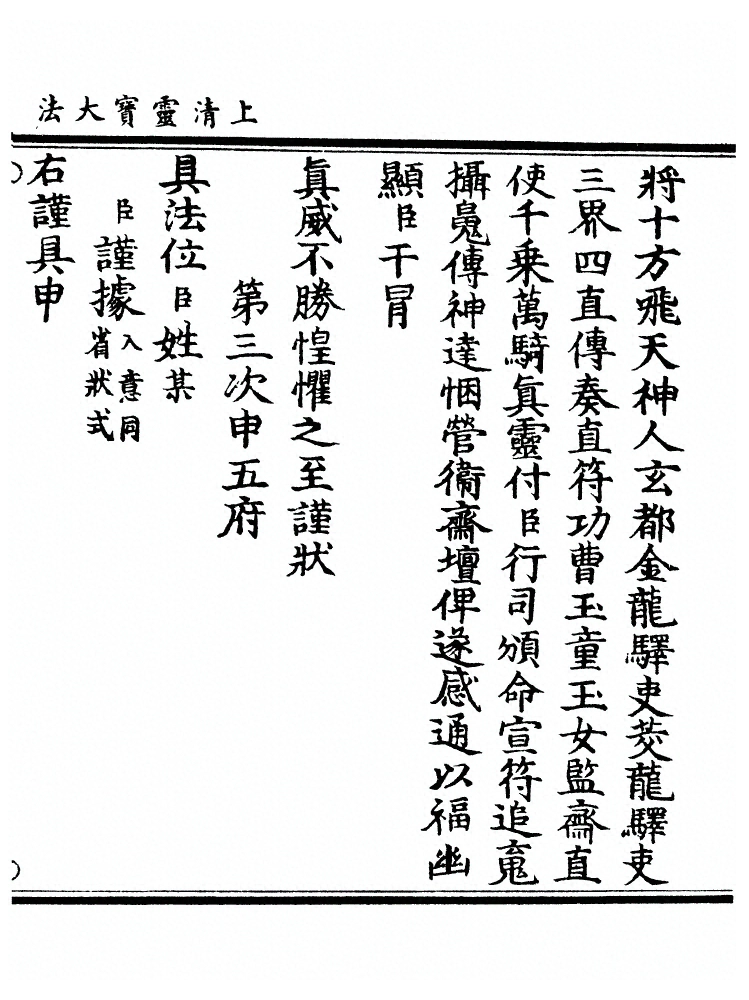 上清靈寶大法
將十方飛天神人玄都金龍驛吏茭龍驛吏
三界四直傳奏直符功曹玉童玉女監齋直
使千乘萬騎眞靈付臣行司頒命宣符追䰟
攝䰟傳神達悃營衞齋壇俾遂感通以福幽
顯臣干冒
眞威不勝惶懼之至謹狀
第三次申五府
具法位臣姓某
臣謹據入意同省狀式
右謹具申